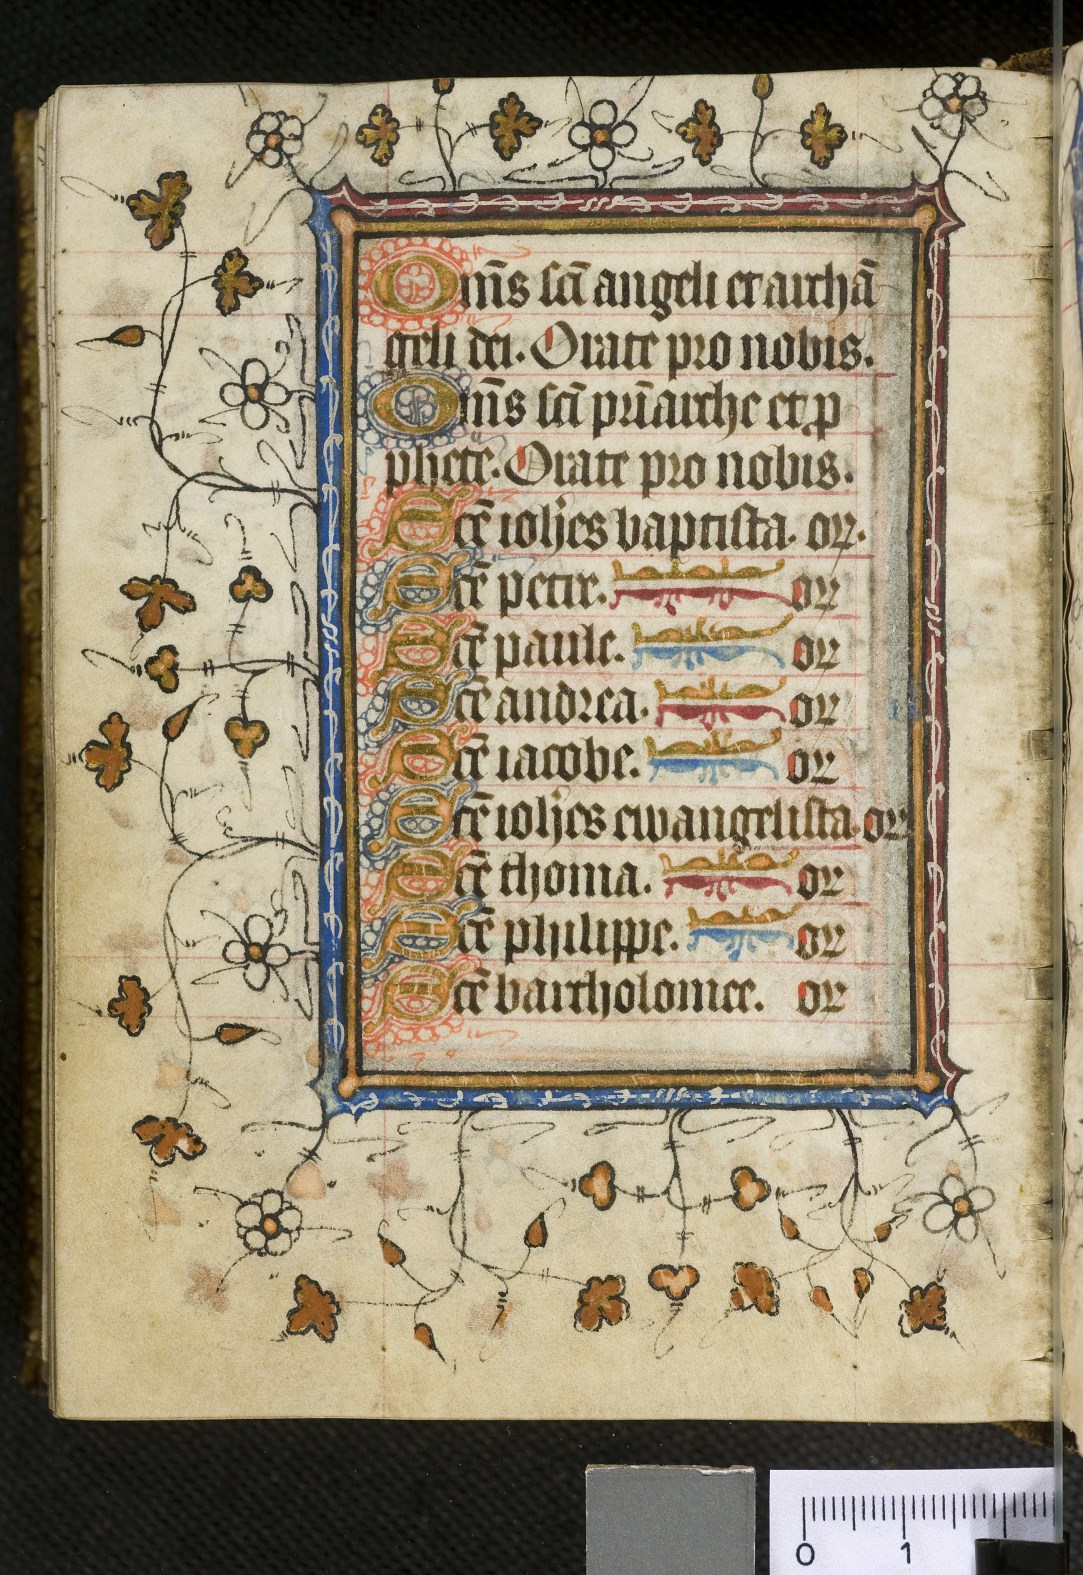 Om̄s sc̄i angeli et archā
geli dei. Orate pro nobis.
Om̄s sc̄i pr̄iarche et ꝓ
phete. Orate pro nobis.
Sc̄e ioh̄es baptista. or.
Sc̄e petre. or
Sc̄e paule. or
Sc̄e andrea. or
Sc̄e iacobe. or
Sc̄e ioh̄es ewangelista. or
Sc̄e thoma. or
Sc̄e philippe. or
Sc̄e bartholomee. or
0 1